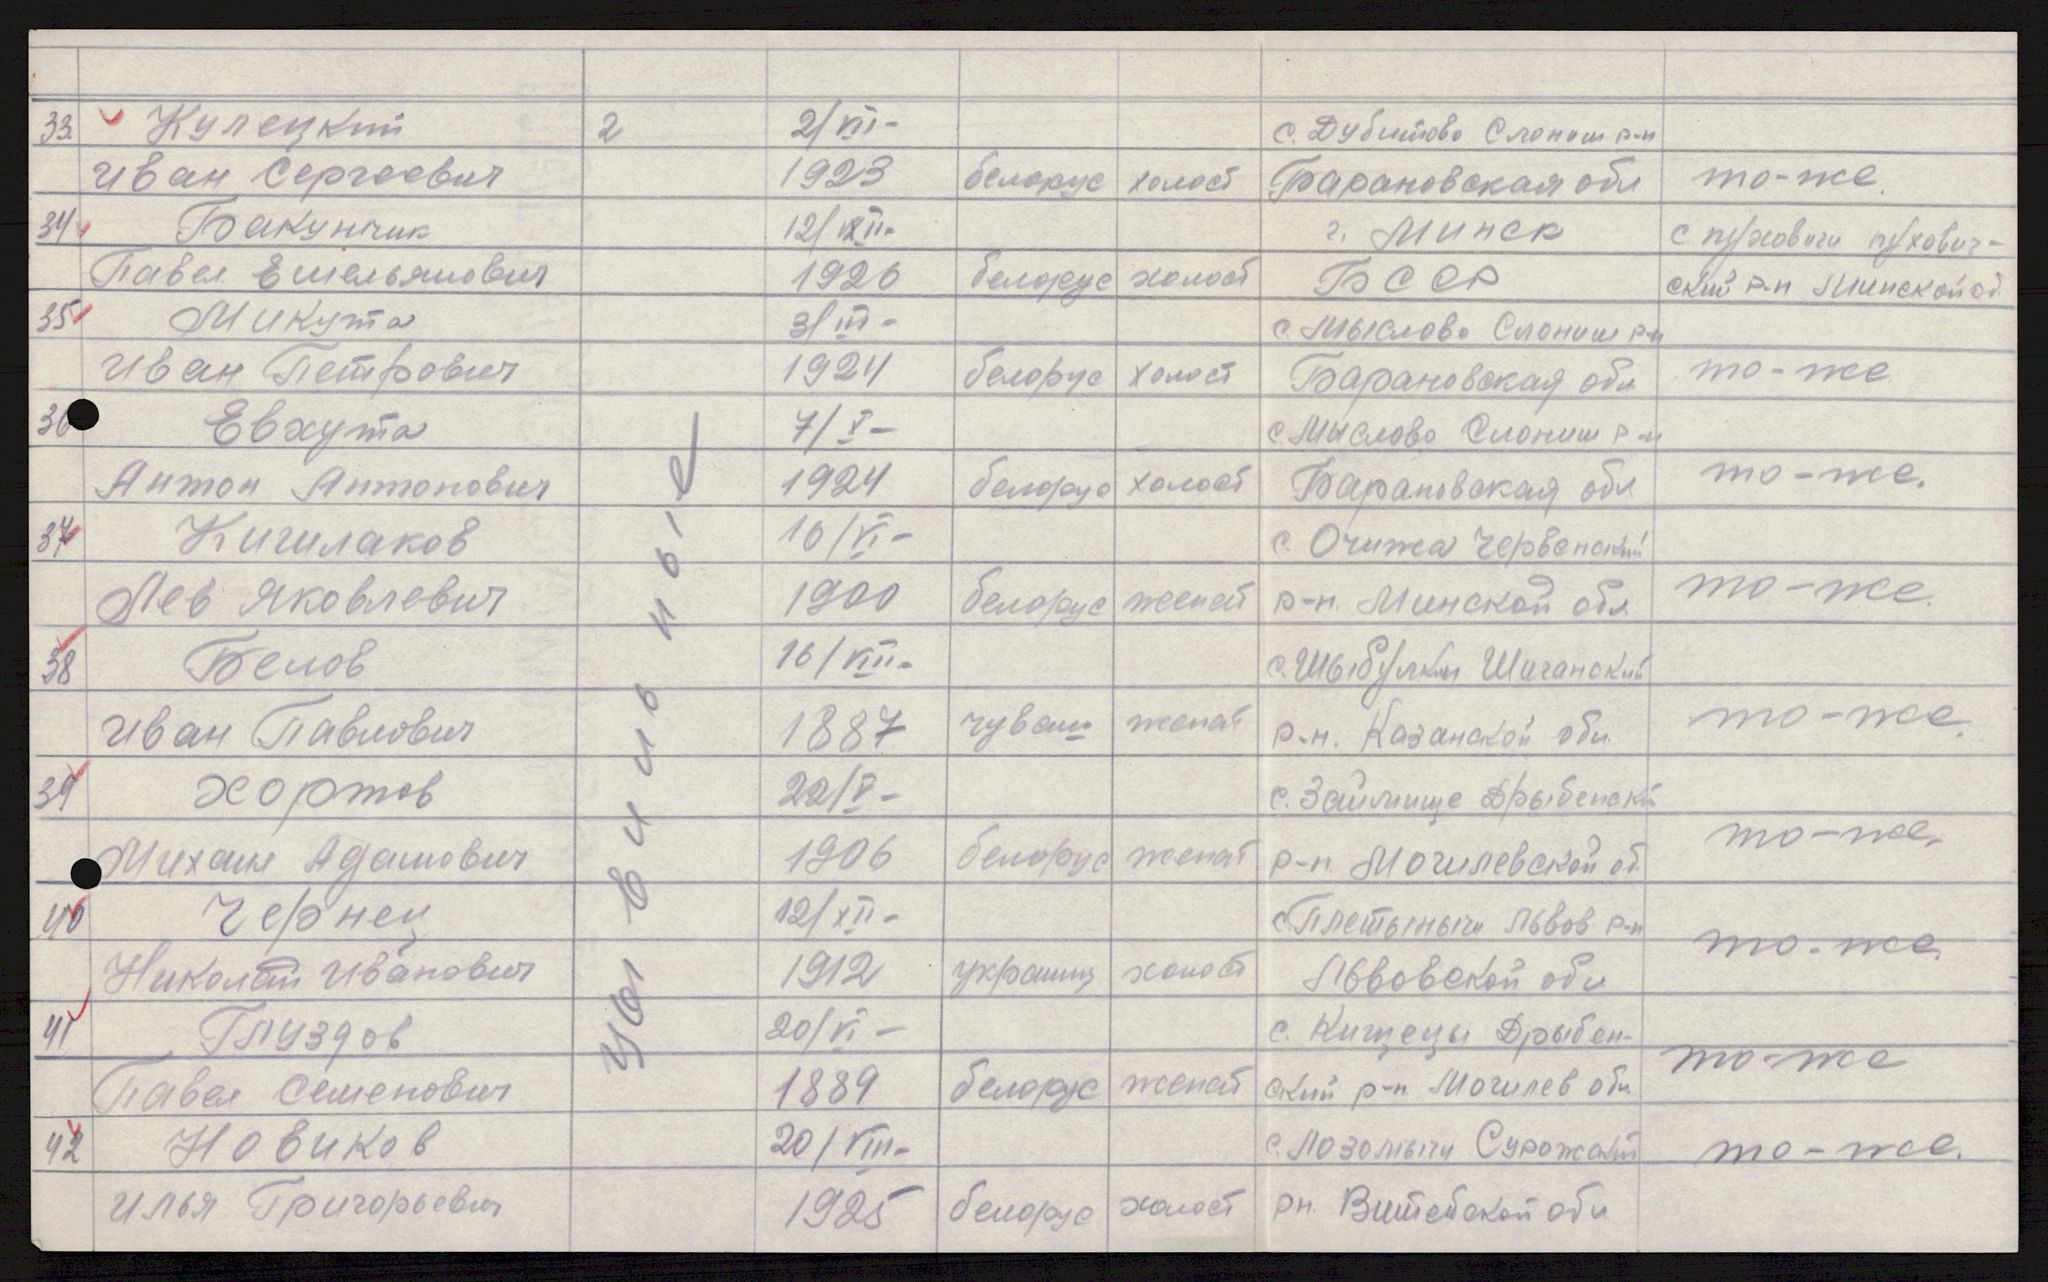 33 Кулецкий 2 2/VIII- с. Дубитово Слоним р-н
Иван Сергеевич 1923 белорус холост Барановская обл то-же.
34 Бакунчик 12/XII- г. Минск с пуховичи пухович-
Павел Емельянович 1926 белорус холост БССР ский р-н Минской об
35 Микута 3/III- с. Мыслово Слоним р-н
Иван Петрович 1924 белорус холост Барановская обл то-же
36 Евхута 7/X- с. Мыслово Слоним р-н
Антон Антонович 1924 белорус холост Барановская обл то-же.
37 Кигилаков 10/VI- с. Очижа Червенский
Лев Яковлевич 1900 белорус женат р-н. Минской обл то-же.
38 Белов 16/VIII- с. Шыбулки Шиганский
Иван Павлович 1887 чуваш женат р-н. Казанской обл то-же.
39 Хортов 22/V- с. Займище Дрыбенский
Михаил Адамович 1906 белорус женат р-н. Могилевской об то-же.
40 Чернец 12/XII- с. Плетыничи Львов р-н
Николай Иванович 1912 украинц холост Львовской обл то-же
41 Глуздов 20/VI- с. Кищецы Дрыбен-
Павел Семенович 1889 белорус женат ский р-н Могилев обл то-же
42 Новиков 20/VIII- с. Лозомычи Сурожский то-же.
Илья Григорьевич 1925 белорус холост рн. Витебской обл
цывильные